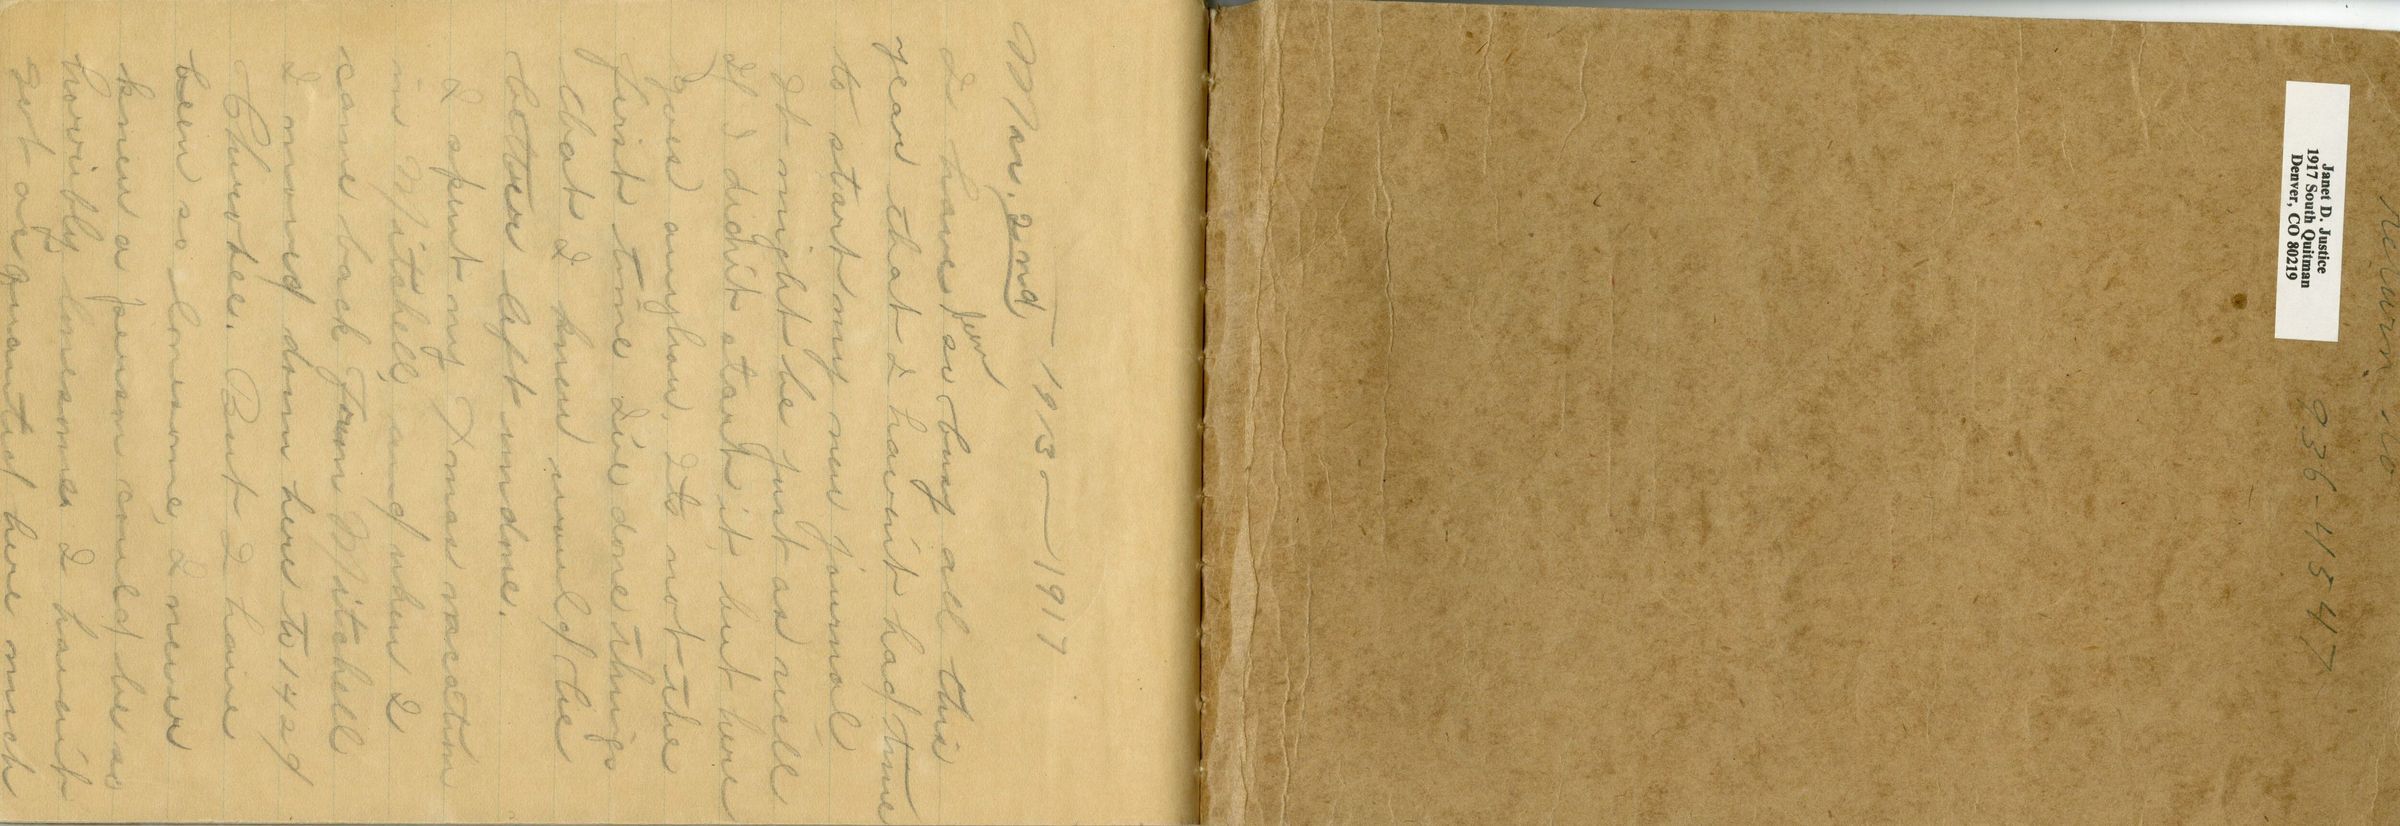 Return to
936-4547
Janet D. Justice
1917 South Quitman
Denver, CO 80219
1915—1917
Mar. 2nd
I have been so busy all this
year that I havent had time
to start my new journal
It might be just as well
If I didnt start it, but here
goes anyhow, Its not the
first time Ive done things
that I knew would be
better left undone.
I spent my Xmas vacation
in Mitchell, and when I
came back from Mitchell
I moved down here to 1429
But I have
been so lonesome, I never
knew a person could be so
horribly lonesome. I havent
got acquainted here much